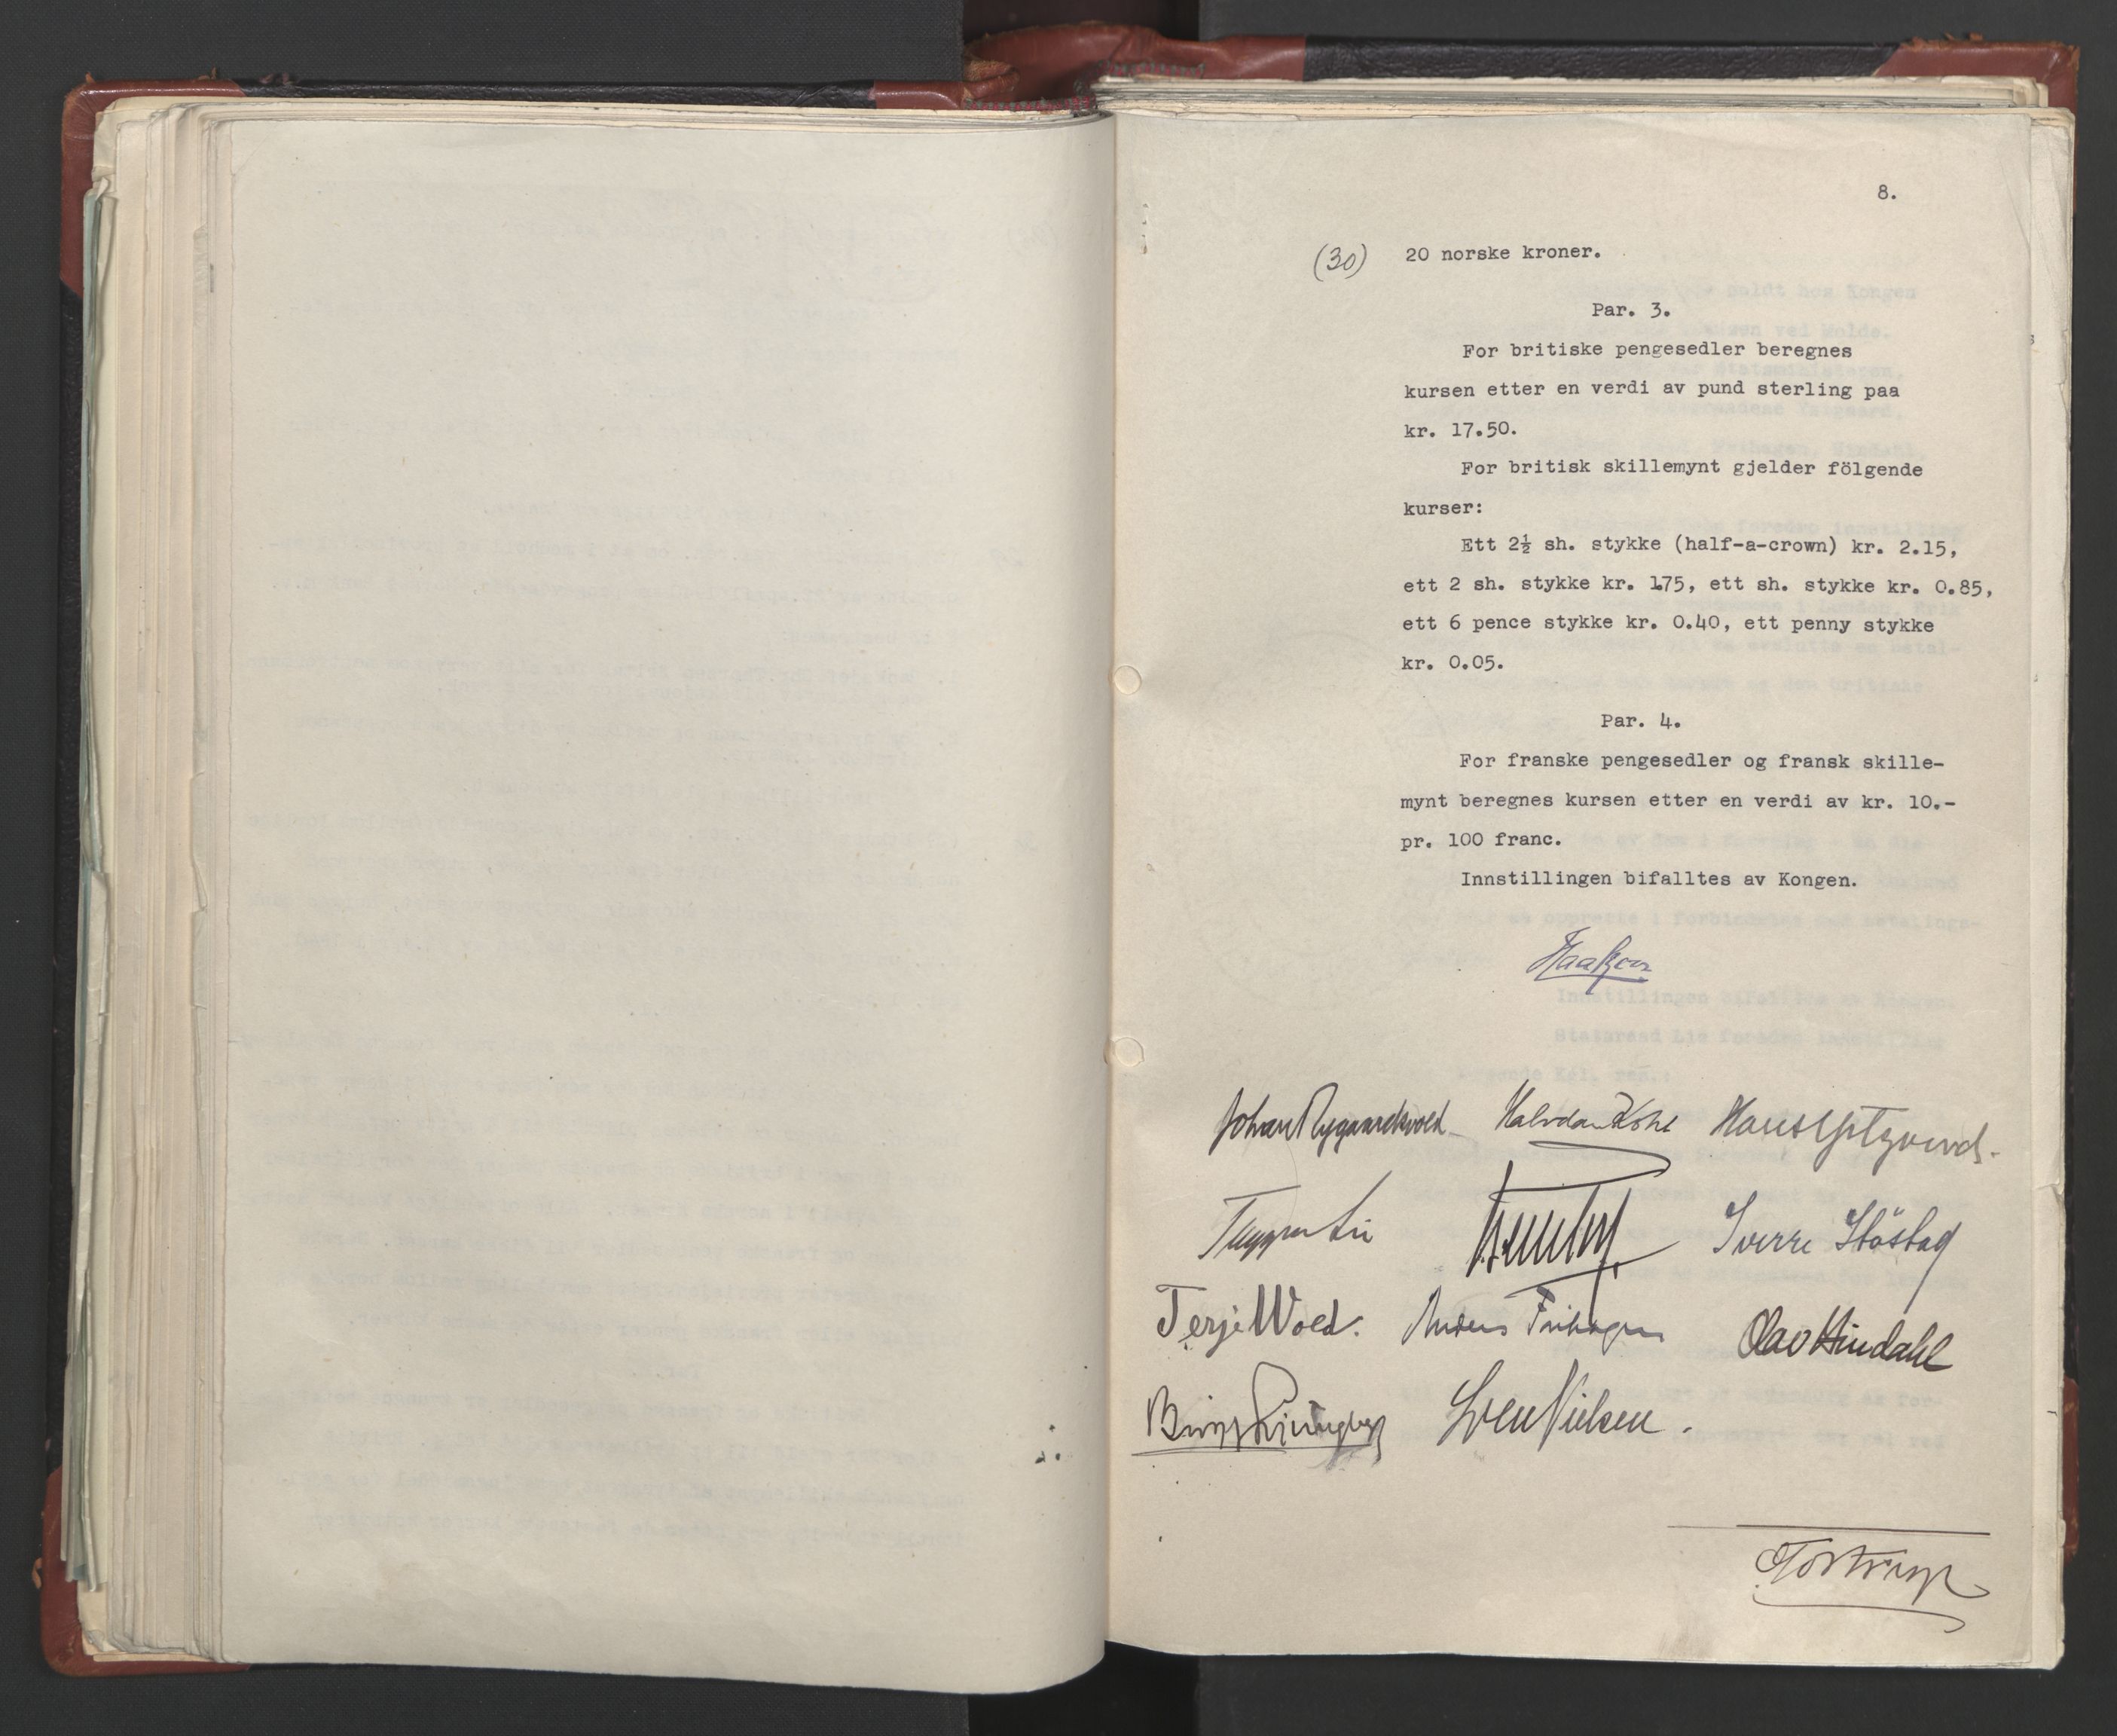 8.
(30) 20 norske kroner.
Par. 3.
For britiske pengesedler beregnes
kursen etter en verdi av pund sterling paa
kr. 17.50.
For britisk skillemynt gjelder fölgende
kurser:
Ett 2½ sh. stykke (half-a-crown) kr. 2.15,
ett 2 sh. stykke kr. 1.75, ett sh. stykke kr. 0.85,
ett 6 pence stykke kr. 0.40, ett penny stykke
kr. 0.05.
Par. 4.
For franske pengesedler og fransk skille-
mynt beregnes kursen etter en verdi av kr. 10.-
pr. 100 franc.
Innstillingen bifalltes av Kongen.
Haakon
Johan Nygaardsvold Halvdan Koht
Trygve Lie Sverre Støstad
Terje Wold. Anders Frihagen Olav Hindahl
Birger Ljungberg Sven Nielsen.